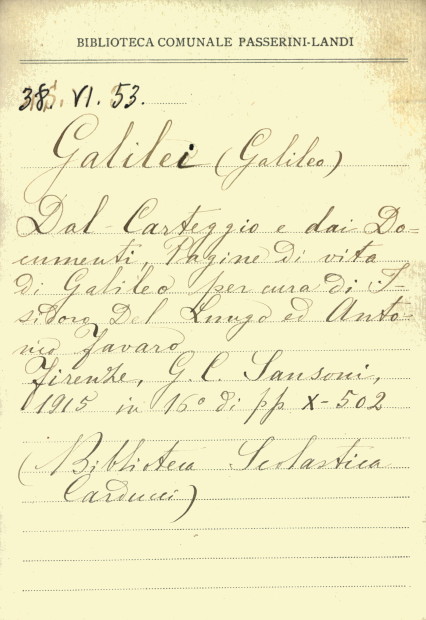 BIBLIOTECA COMUNALE PASSERINI-LANDI
38. VI. 53.
Galilei (Galileo)
Dal Carteggio e dai Do=
cumenti, Pagine di vita
di Galileo per cura di I=
sidoro Del Lungo ed Anto=
nio Favaro
Firenze, G. C. Sansoni,
1915 in 16° di pp X-502
(Biblioteca Scolastica
Carducci)